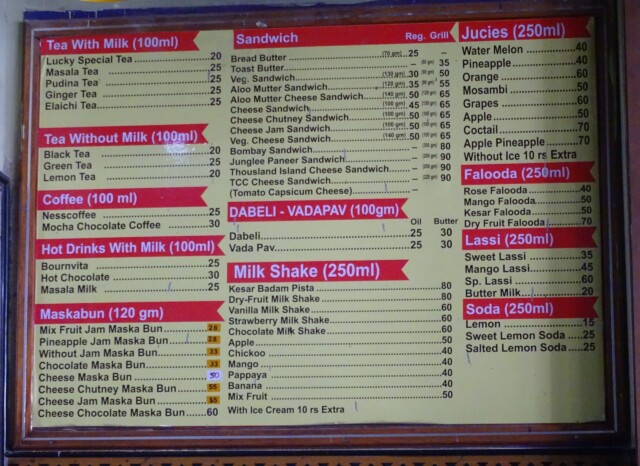 Tea With Milk (100ml)
Lucky Special Tea 20
Masala Tea 25
Pudina Tea 25
Ginger Tea 25
Elaichi Tea 25
Tea Without Milk (100ml)
Black Tea 20
Green Tea 25
Lemon Tea 20
Coffee (100 ml)
Nesscoffee 25
Mocha Chocolate Coffee 30
Hot Drinks With Milk (100ml)
Bournvita 25
Hot Chocolate 30
Masala Milk 25
Maskabun (120 gm)
Mix Fruit Jam Maska Bun 28
Pineapple Jam Maska Bun 28
Without Jam Maska Bun 33
Chocolate Maska Bun 33
Cheese Maska Bun 50
Cheese Chutney Maska Bun 55
Cheese Jam Maska Bun 55
Cheese Chocolate Maska Bun 60
Sandwich Reg. Grill
Bread Butter (70 gm) 25 –
Toast Butter – 35
Veg. Sandwich (130 gm) 30 50
Aloo Mutter Sandwich (120 gm) 35 55
Aloo Mutter Cheese Sandwich (140 gm) 50 65
Cheese Sandwich (100 gm) 45 65
Cheese Chutney Sandwich (100 gm) 50 65
Cheese Jam Sandwich (100 gm) 50 65
Veg. Cheese Sandwich (140 gm) 50 65
Bombay Sandwich – 80
Junglee Paneer Sandwich – 90
Thousland Island Cheese Sandwich – 90
TCC Cheese Sandwich – 90
(Tomato Capsicum Cheese) –
DABELI - VADAPAV (100gm)
Oil Butter
Dabeli 25 30
Vada Pav 25 30
Milk Shake (250ml)
Kesar Badam Pista 80
Dry-Fruit Milk Shake 80
Vanilla Milk Shake 60
Strawberry Milk Shake 60
Chocolate Milk Shake 60
Apple 50
Chickoo 40
Mango 40
Pappaya 40
Banana 40
Mix Fruit 50
With Ice Cream 10 rs Extra
Jucies (250ml)
Water Melon 40
Pineapple 40
Orange 60
Mosambi 50
Grapes 60
Apple 50
Coctail 70
Apple Pineapple 70
Without Ice 10 rs Extra
Falooda (250ml)
Rose Falooda 40
Mango Falooda 50
Kesar Falooda 50
Dry Fruit Falooda 70
Lassi (250ml)
Sweet Lassi 35
Mango Lassi 45
Sp. Lassi 60
Butter Milk 20
Soda (250ml)
Lemon 15
Sweet Lemon Soda 25
Salted Lemon Soda 25